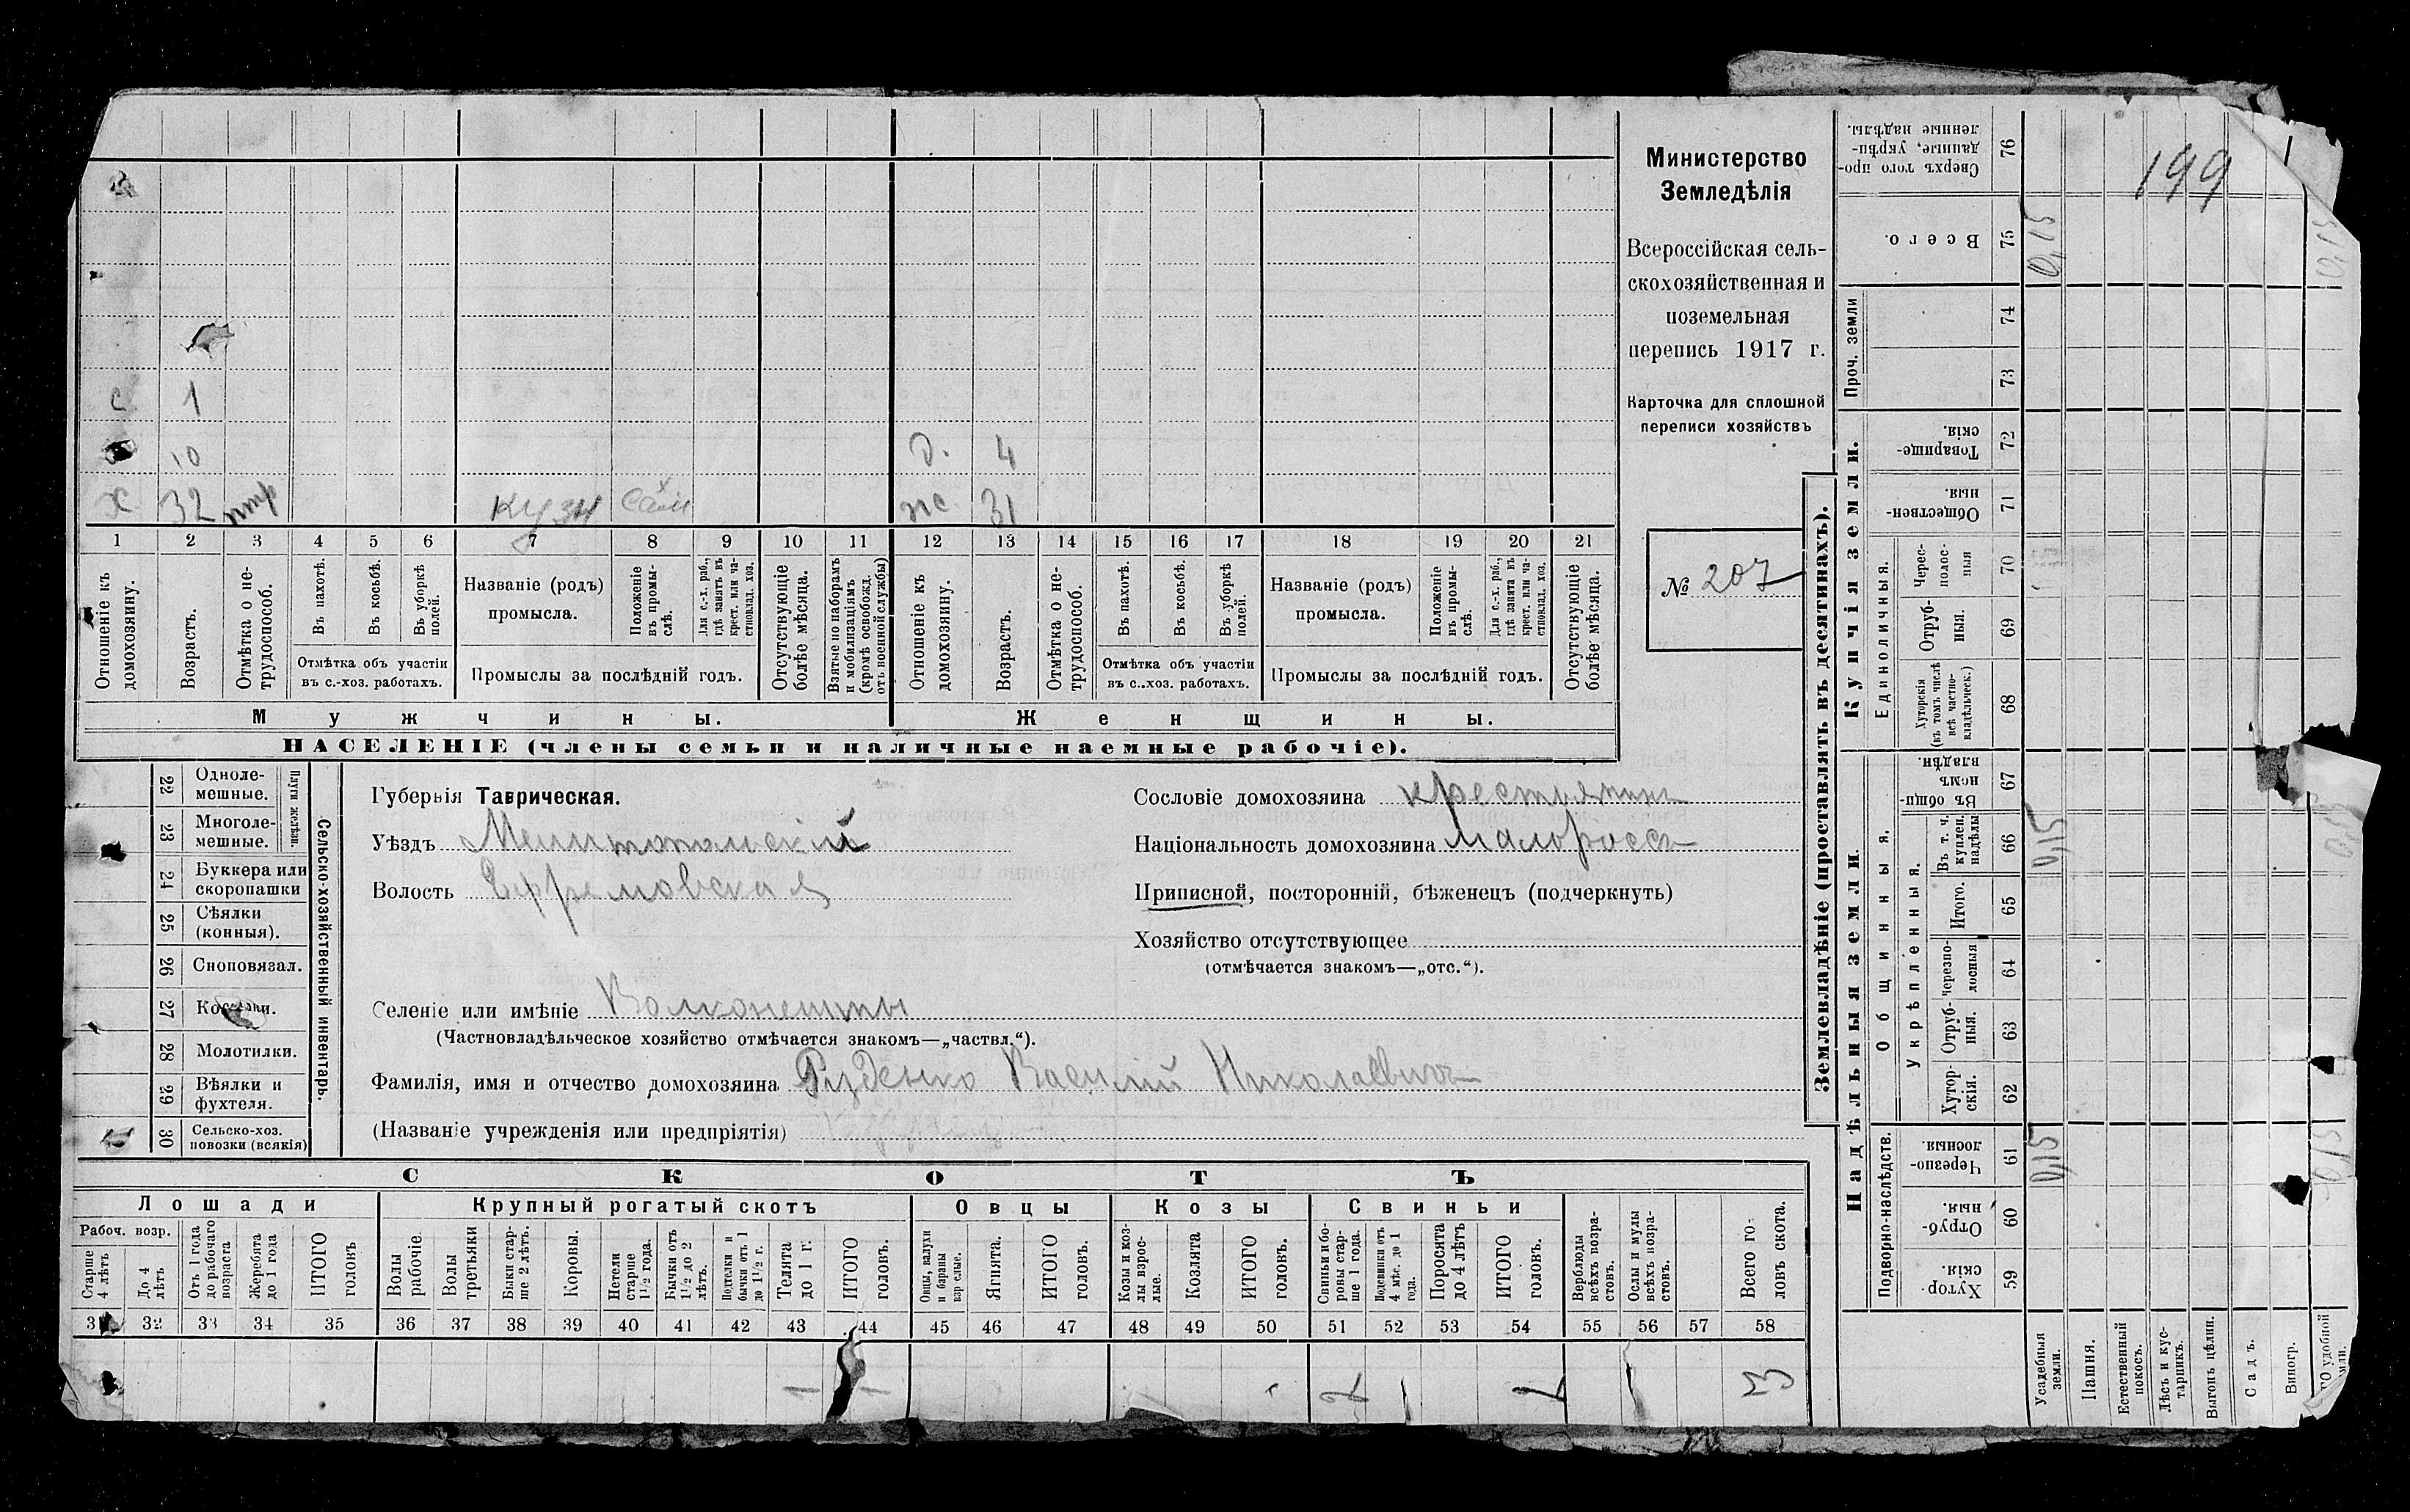 199
с 1
10 д. 4
х 32 нтр кузн сам ж 31
1 2 3 4 5 6 7 8 9 10 11 12 13 14 15 16 17 18 19 20 21
Отношеніе къ домохозяину.
Возрастъ.
Отмѣтка о не-трудоспособ.
Въ пахотѣ.
Въ косьбѣ.
Въ уборкѣ полей.
Отмѣтка объ участіи
въ с.-хоз. работахъ.
Названіе (родъ)
промысла.
Положеніе въ промы-слѣ.
Для с.-х. раб., гдѣ занятъ въ крест. или ча-стновлад. хоз.
Промыслы за послѣдній годъ.
Отсутствующіе болѣе мѣсяца.
Взятые по наборамъ и мобилизаціямъ (кромѣ освобожд. отъ военной службы)
Отношеніе къ домохозяину.
Возрастъ.
Отмѣтка о не-трудоспособ.
Въ пахотѣ.
Въ косьбѣ.
Въ уборкѣ полей.
Отмѣтка объ участіи
въ с.-хоз. работахъ.
Названіе (родъ)
промысла.
Положеніе въ промы-слѣ.
Для с.-х. раб., гдѣ занятъ въ крест. или ча-стновлад. хоз.
Промыслы за послѣдній годъ.
Отсутствующіе болѣе мѣсяца.
Мужчины.
Женщины.
НАСЕЛЕНІЕ (члены семьи и наличные наемные рабочіе).
Министерство
Земледѣлія
Всероссійская сель-
скохозяйственная и
поземельная
перепись 1917 г.
Карточка для сплошной
переписи хозяйствъ
№ 207
22 Одноле-мешные.
23 Многоле-мешные.
Плуги желѣзн.
24 Буккера или скоропашки
25 Сѣялки (конныя).
26 Сноповязал.
27 Косилки.
28 Молотилки.
29 Вѣялки и фухтеля.
30 Сельско-хоз. повозки (всякія)
Сельско-хозяйственный инвентарь.
Губернія Таврическая.
Уѣздъ Мелитопольскій
Волость Ефремовская
Сословіе домохозяина крестьянинъ
Національность домохозяина малороссъ
Приписной, посторонній, бѣженецъ (подчеркнуть)
Хозяйство отсутствующее
(отмѣчается знакомъ—„отс.“).
Селеніе или имѣніе Волконешты
(Частновладѣльческое хозяйство отмѣчается знакомъ—„частвл.“).
Фамилія, имя и отчество домохозяина Руденко Василій Николаевичъ
(Названіе учрежденія или предпріятія)
СКОТЪ
Лошади
Крупный рогатый скотъ
Овцы
Козы
Свиньи
Рабоч. возр.
Старше 4 лѣтъ
До 4 лѣтъ
Отъ 1 года до рабочаго возраста
Жеребята до 1 года
ИТОГО головъ
Волы рабочіе.
Волы третьяки
Быки стар-ше 2 лѣтъ.
Коровы.
Нетели старше 1½ года.
Бычки отъ 1½ до 2 лѣтъ.
Подтелки и бычки отъ 1 до 1½ г.
Телята до 1 г.
ИТОГО головъ.
Овцы, валухи и бараны взрослые.
Ягнята.
ИТОГО головъ.
Козы и коз-лы взрос-лые.
Козлята
ИТОГО головъ.
Свиньи и бо-ровы стар-ше 1 года.
Подсвинки отъ 4 мѣс. до 1 года.
Поросята до 4 лѣтъ
ИТОГО головъ.
Верблюды всѣхъ возра-стовъ.
Ослы и мулы всѣхъ возра-стовъ.
Всего го-ловъ скота.
31 32 33 34 35 36 37 38 39 40 41 42 43 44 45 46 47 48 49 50 51 52 53 54 55 56 57 58
1 2 2 3
Землевладѣніе (проставлять въ десятинахъ).
Купчія земли.
Надѣльныя земли.
Сверхъ того про-данные, укрѣп-ленные надѣлы. 76
Всего. 75 0,15
Проч. земли 74 73
Товарище-скія. 72
Обществен-ныя. 71
Единоличныя.
Черес-полос-ныя 70
Отруб-ныя. 69
Хуторскія (въ томъ числѣ всѣ частно-владѣльческ.) 68
Общинныя.
Въ общи-номъ владѣн. 67
Укрѣпленныя.
Въ т. ч. куплен. надѣлы 66 0,15
Итого. 65
Черезпо-лосныя 64
Отруб-ныя. 63
Хутор-скія. 62
Подворно-наслѣдств.
Черезпо-лосныя. 61 0,15
Отруб-ныя. 60
Хутор-скія. 59
Усадебныя земли.
Пашня.
Естественный покосъ.
Лѣсъ и кус-тарникъ.
Выгонъ цѣлин.
Садъ.
Виногр.
0,15